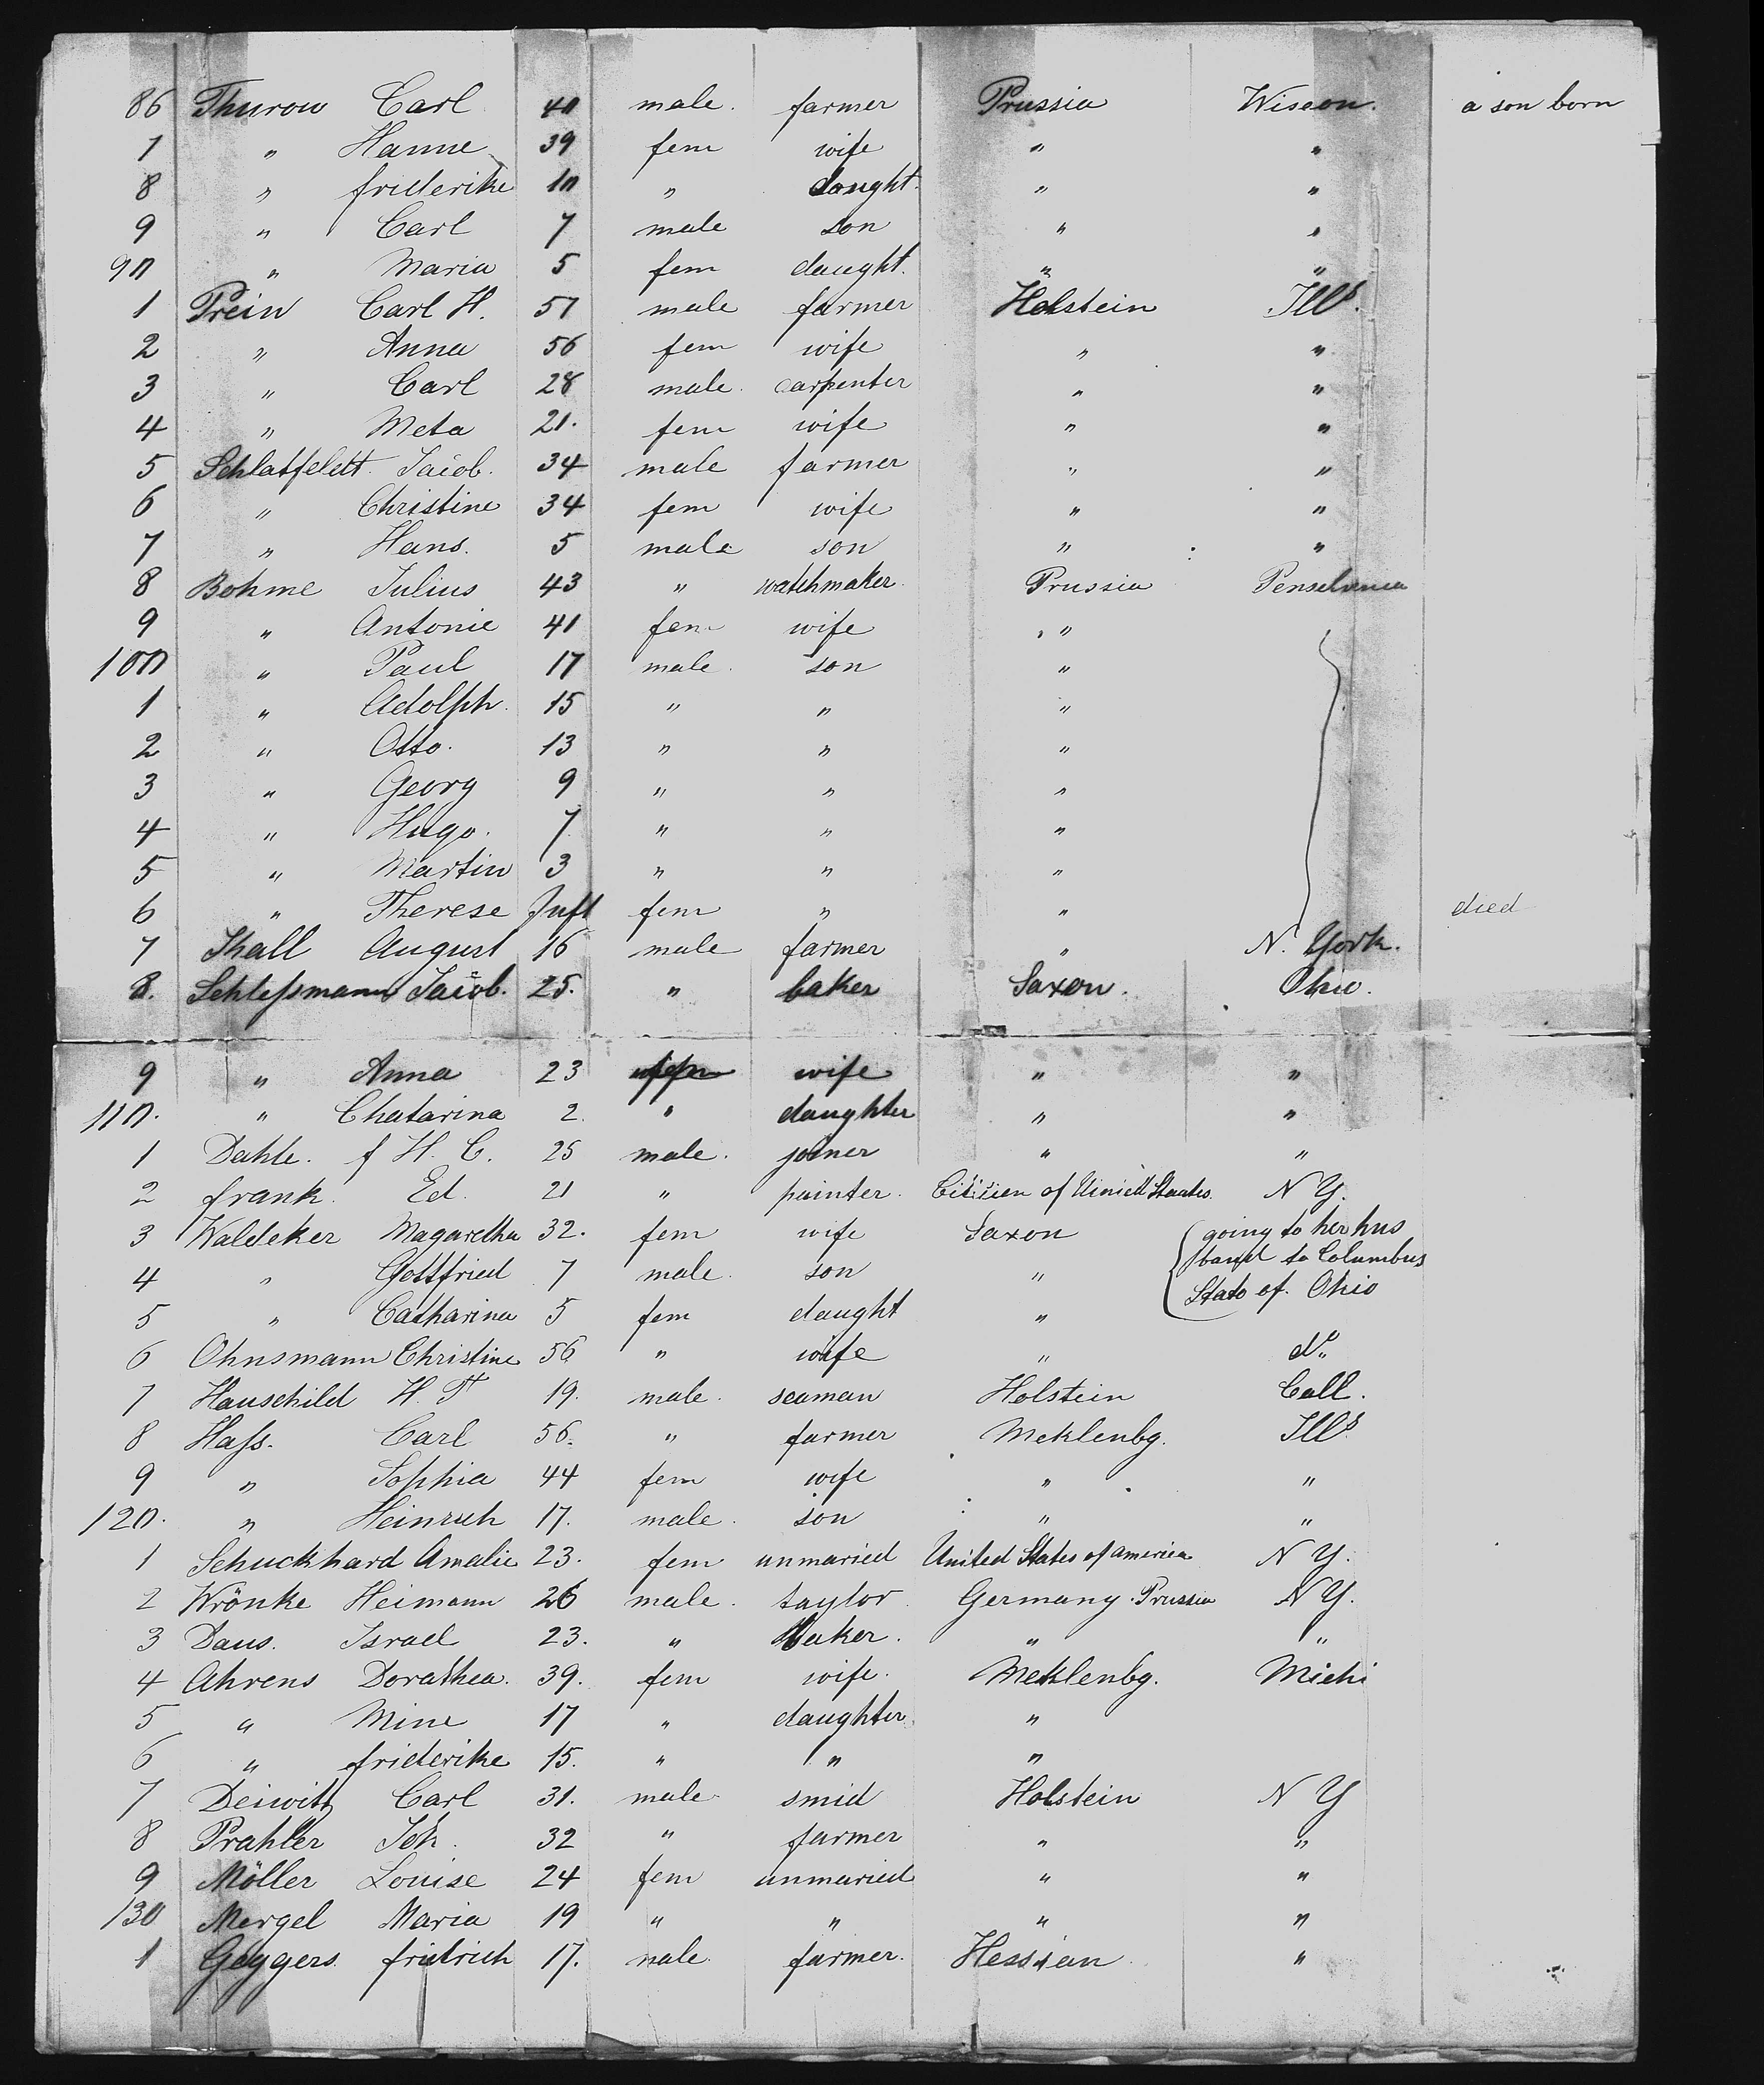 86 Thurow Carl 40 male. farmer Prussia Wiscon. a son born
7 " Hanne 39 fem wife " "
8 " friederike 10 " daught. " "
9 " Carl 7 male son " "
90 " Maria 5 fem daught. " "
1 Prein Carl H. 57 male farmer Holstein Ills.
2 " Anna 56 fem wife " "
3 " Carl 28 male. carpenter " "
4 " Meta 21. fem wife " "
5 Schlatfeldt. Jacob. 34 male farmer " "
6 " Christine 34 fem wife " "
7 " Hans. 5 male son " "
8 Bohme Julius 43 " watchmaker. Prussia Penselvenia
9 " Antonie 41 fem wife "
100 " Paul 17 male. son "
1 " Adolph. 15 " " "
2 " Otto. 13 " " "
3 " Georg 9 " " "
4 " Hugo. 7 " " "
5 " Martin 3 " " "
6 " Therese Juft fem " " died
7 Thall August 16 male farmer " N. York.
8. Schleßmann Jacob. 25. " baker Saxon. Ohio.
9 " Anna 23 wife " "
110. " Chatarina 2. " daughter " "
1 Dahle. f H. C. 25 male. joiner " "
2 frank. Ed. 21 " painter. Citizen of United Staates. N Y.
3 Waldeker Magaretha 32. fem wife Saxon going to her hus
4 " Gottfried 7 male. son " band to Columbus
5 " Catharina 5 fem daught " State of. Ohio
6 Ohnsmann Christine 56 " wife " do.
7 Hauschild H. 19. male. seaman Holstein Call.
8 Haß. Carl 56. " farmer Meklenbg. Ills.
9 " Sophia 44 fem wife " "
120. " Heinrich 17. male. son " "
1 Schuckhard Amalie 23. fem unmaried United States of america N Y.
2 Wrönke Heimann 26 male. taylor Germany. Prussia N Y.
3 Daus. Israel 23. " baker. " "
4 Ahrens Dorathea. 39. fem wife. Meklenbg. Michi
5 " Mine 17 " daughter "
6 " friederike 15. " " "
7 Deiwitz Carl 31. male smid Holstein N Y
8 Prahler Joh. 32 " farmer " "
9 Möller Louise 24 fem unmaried " "
130 Mergel Maria 19 " " " "
1 Geggers. fridrich 17. male. farmer. Hessian "